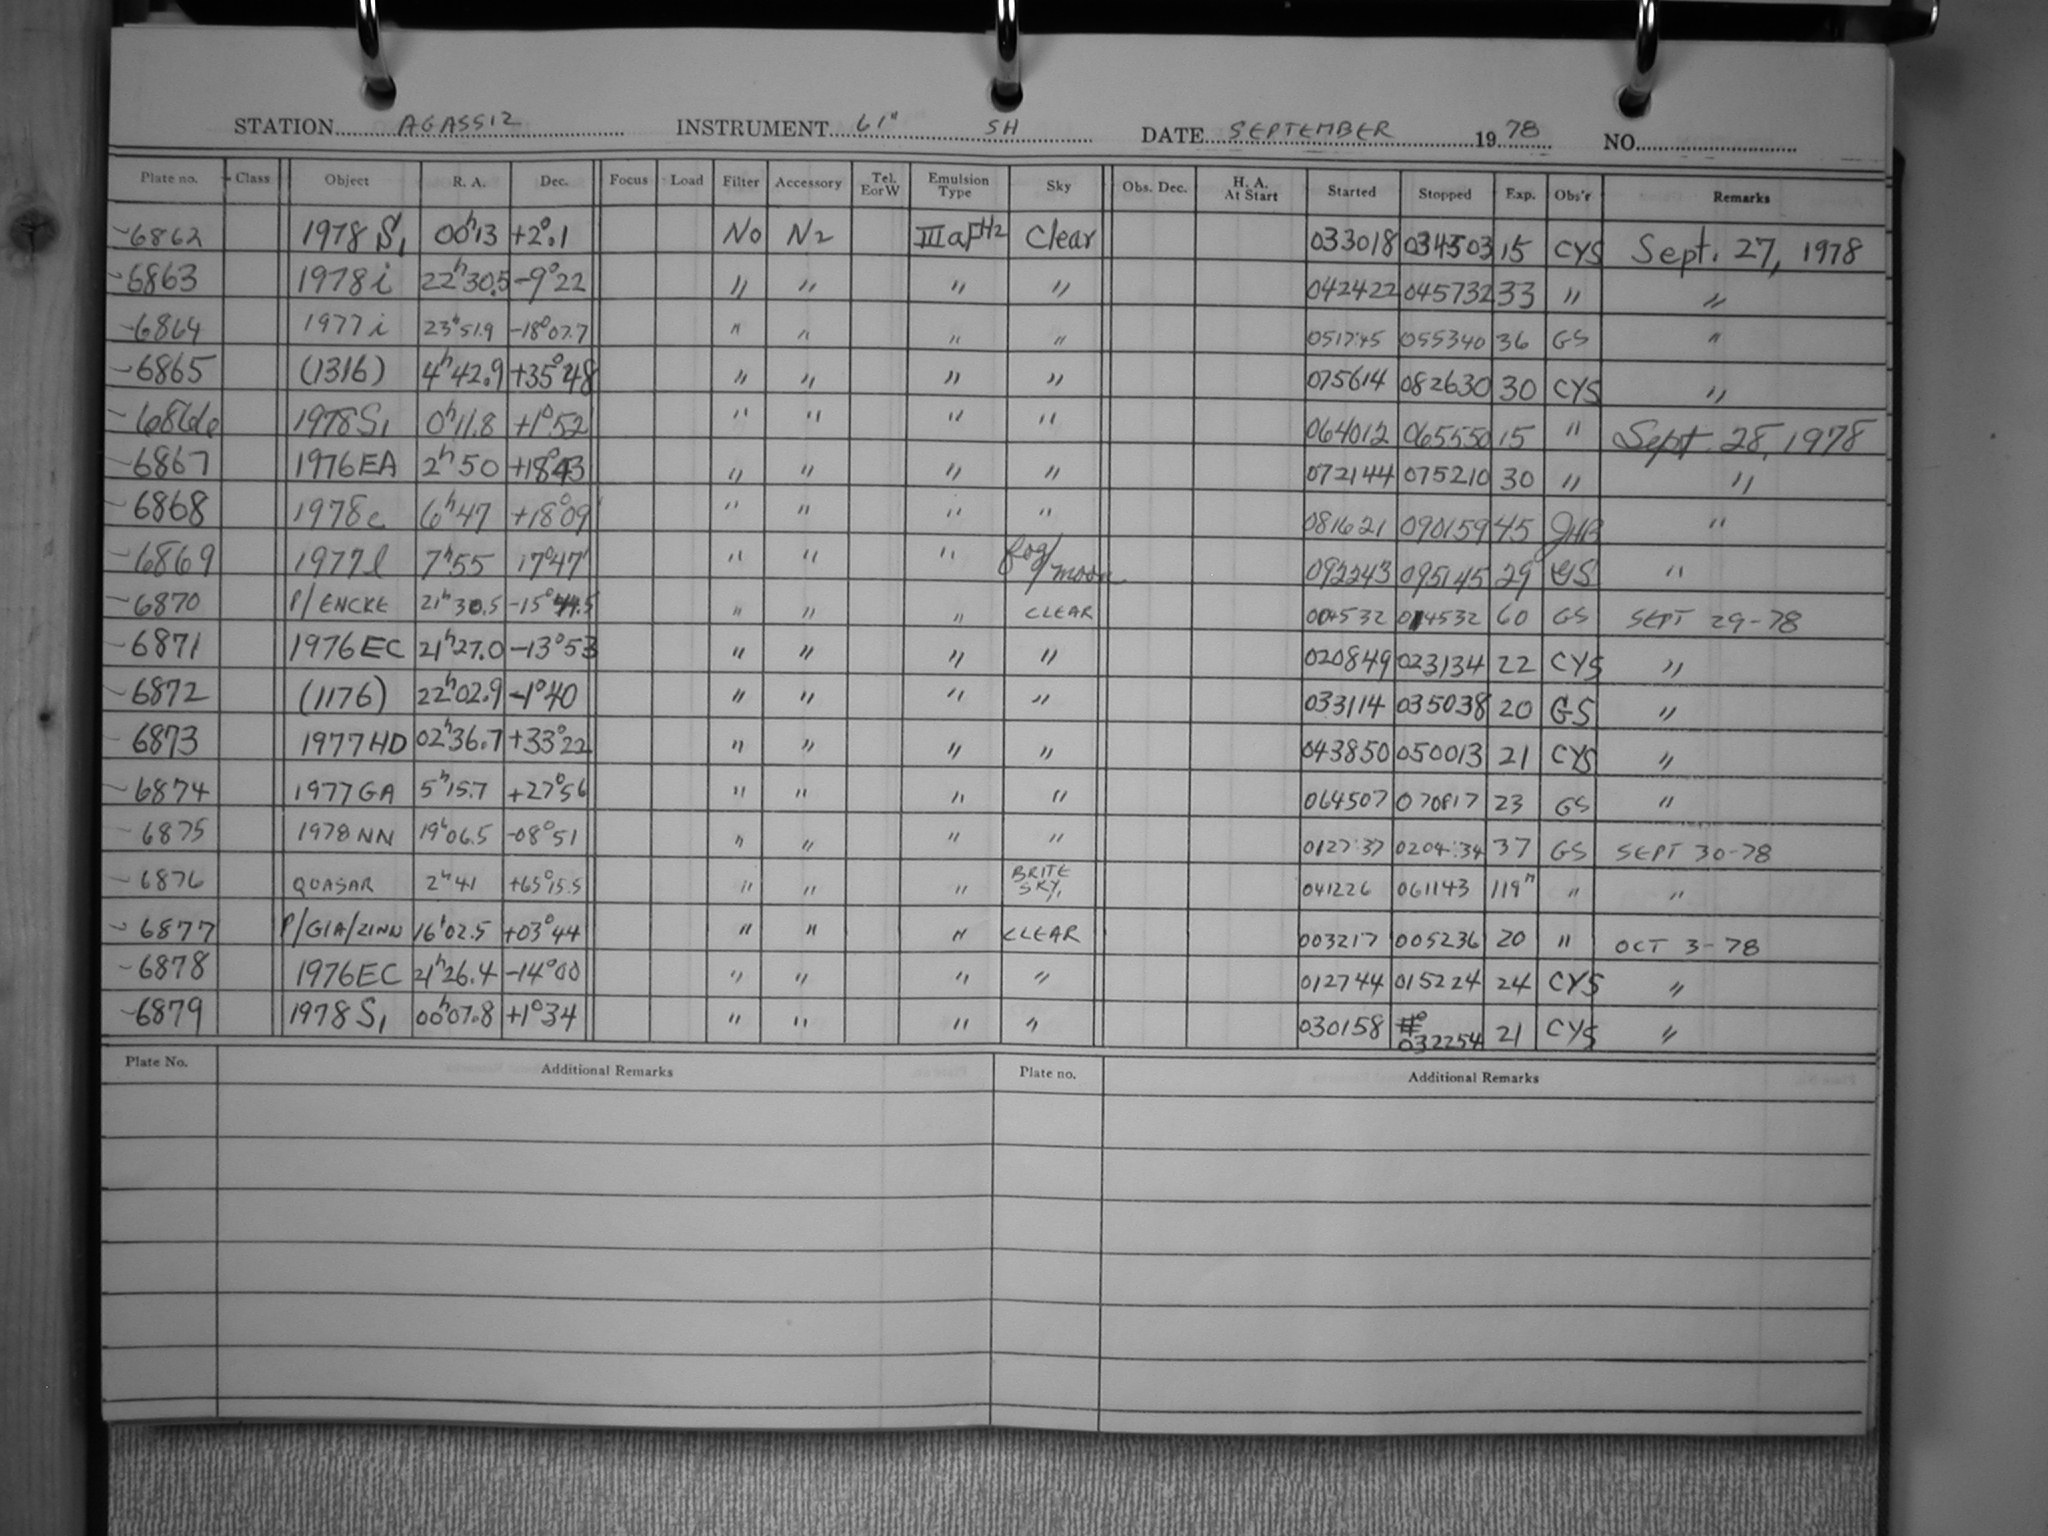 STATION AGASSIZ INSTRUMENT 61" SH DATE SEPTEMBER 1978 NO.
Plate no. Class Object R. A. Dec. Focus Load Filter Accessory Tel. E or W Emulsion Type Sky Obs. Dec. H. A. At Start Started Stopped Exp. Obs'r Remarks
6862 1978 S1 00h13 +2°.1 No N2 IIIaFH2 Clear 033018 034503 15 CYS Sept. 27, 1978
6863 1978i 22h30.5 -9°22 " " " " 042422 045732 33 " "
6864 1977i 23h51.9 -18°07.7 " " " " 051745 055340 36 GS "
6865 (1316) 4h42.9 +35°48 " " " " 075614 082630 30 CYS "
6866 1978S1 0h11.8 +1°52 " " " " 064012 065550 15 " Sept. 28, 1978
6867 1976EA 2h50 +18°43 " " " " 072144 075210 30 " "
6868 1978c 6h47 +18°09 " " " " 081621 090159 45 JHB "
6869 1977l 7h55 17°47' " " " fog/moon 092243 095145 29 GS "
6870 P/ENCKE 21h30.5 -15°44.5 " " " CLEAR 004532 014532 60 GS SEPT 29-78
6871 1976EC 21h27.0 -13°53 " " " " 020849 023134 22 CYS "
6872 (1176) 22h02.9 -1°40 " " " " 033114 035038 20 GS "
6873 1977HD 02h36.7 +33°22 " " " " 043850 050013 21 CYS "
6874 1977GA 5h15.7 +27°56 " " " " 064507 070817 23 GS "
6875 1978NN 19h06.5 -08°51 " " " " 0127:37 0204:34 37 GS SEPT 30-78
6876 QUASAR 2h41 +65°15.5 " " " BRITE SKY, 041226 061143 119m " "
6877 P/GIA/ZINN 16h02.5 +03°44 " " " CLEAR 003217 005236 20 " OCT 3-78
6878 1976EC 21h26.4 -14°00 " " " " 012744 015224 24 CYS "
6879 1978 S1 00h07.8 +1°34 " " " " 030158 032254 21 CYS "
Plate No. Additional Remarks Plate no. Additional Remarks